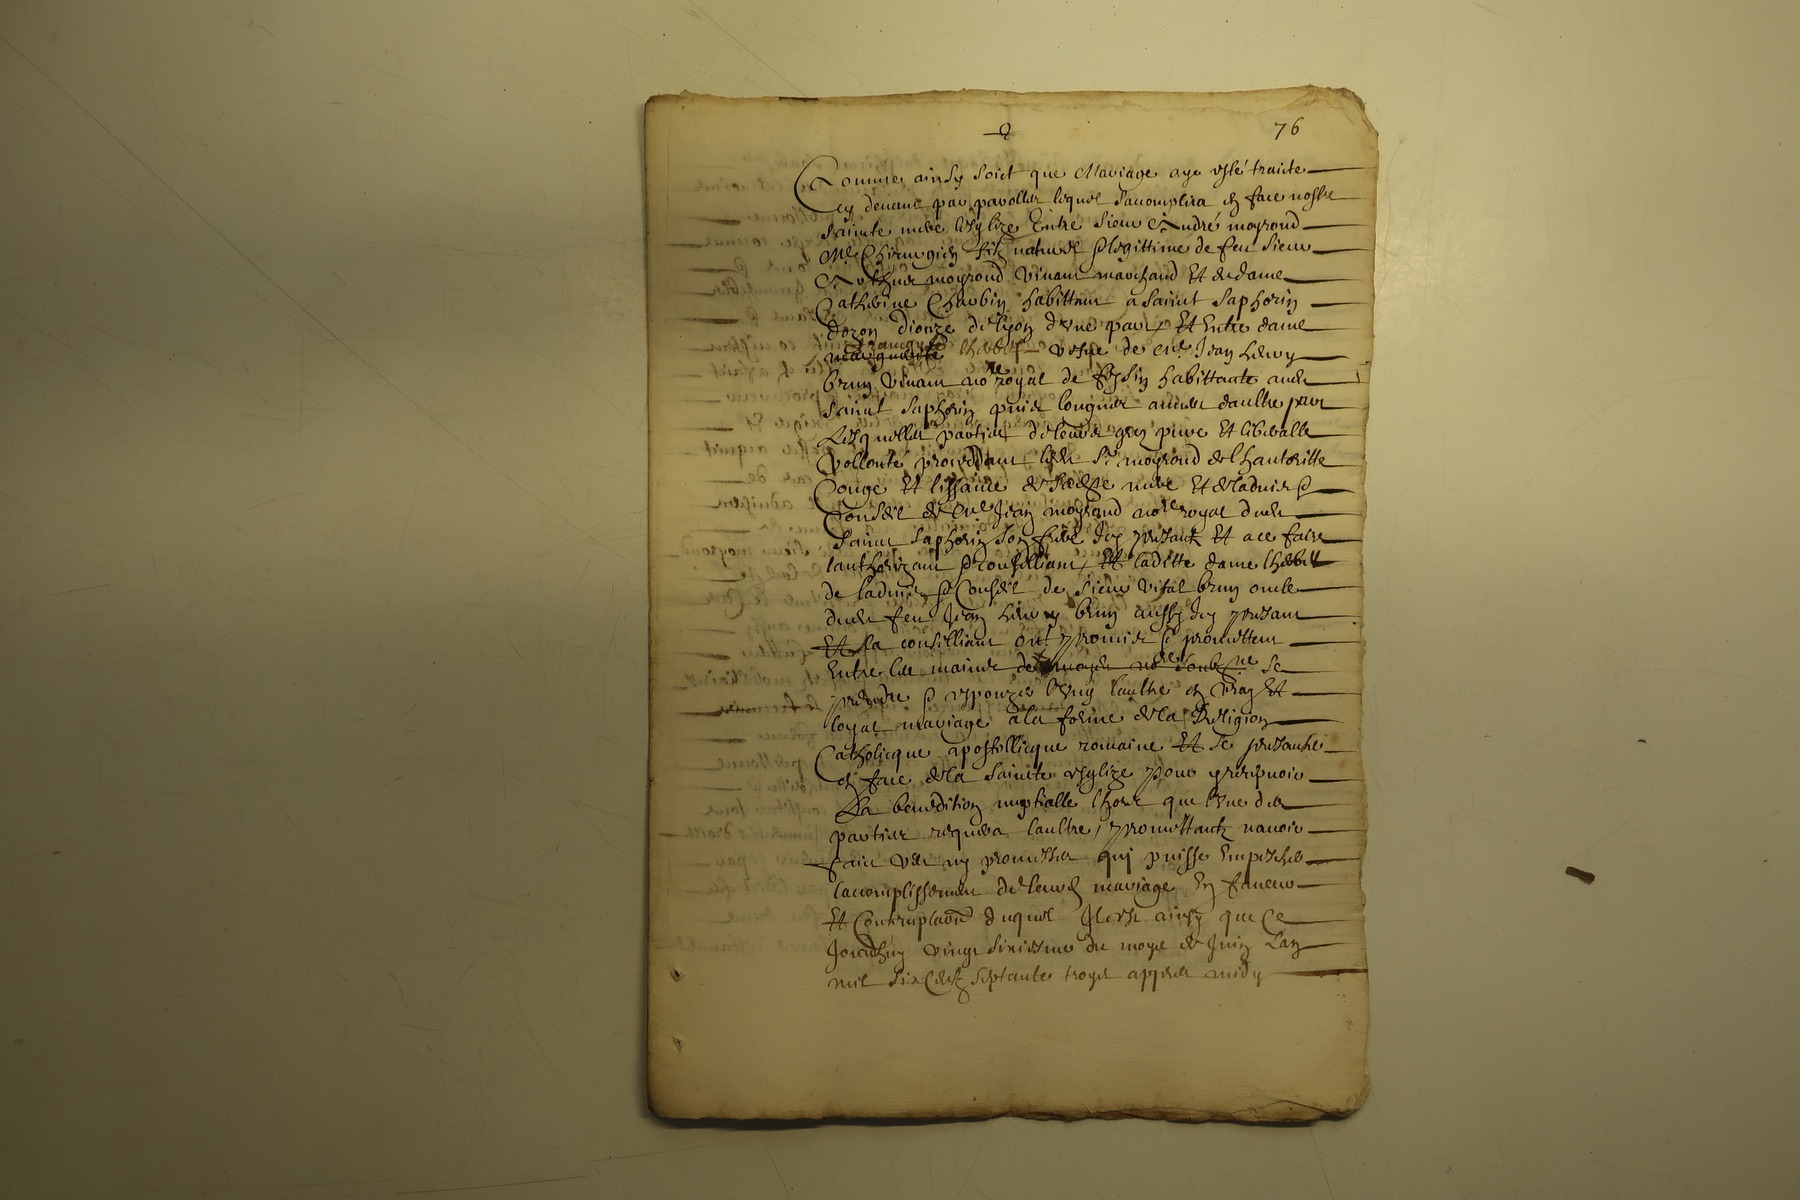 76
Comme ainsy soict que Mariage aye esté traicte
cy devant par parolles lequel sacomplira en face nostre
sainte mere lesglize Entre sieur André moyroud
Me Chirurgien filz naturel & legittime de feu sieur
moyroud vivant marchand Et de dame
Catherine Charbin habittant a saint saphorin
dozon dioceze de lyon dune part, Et Entre dame
vefve de me Jean
brun vivant nore royal de habittante aud
saint saphorin puis longues annees daultre part
Lesquelles parties de leurs grez pure Et liberalle
vollonté proceddant led sr moyroud de lhautoritte
Conge Et lissance de sad mere Et de ladvis &
Conseil de me Jean moyroud nore royal dud
saint saphorin son frere Icy presant Et a ce faire
lauthorizant & conseilliant, Et laditte dame
de ladvis & Conseil de sieur vital brun oncle
dud feu Jean brun aussy Icy presant
Et la conseilliant ont promis & promettent
Entre les mains de nore soubne se
prendre & espouzer lung laultre en vray Et
loyal mariage a la forme de la Religion
Catholicque apostollicque romaine Et se presanter
en face de la sainte esglize pour y recepvoir
La benedition nuptialle lhors que lune des
parties requera laultre, promettant navoir
faict veu ny promesses qui puisse Empescher
lacomplissement de leurd mariage En faveur
Et Contemplaon duquel Il est ainsy que Ce
Jourdhuy vingt sixiesme du moys de Juin Lan
mil six Cent septante troys appres midy